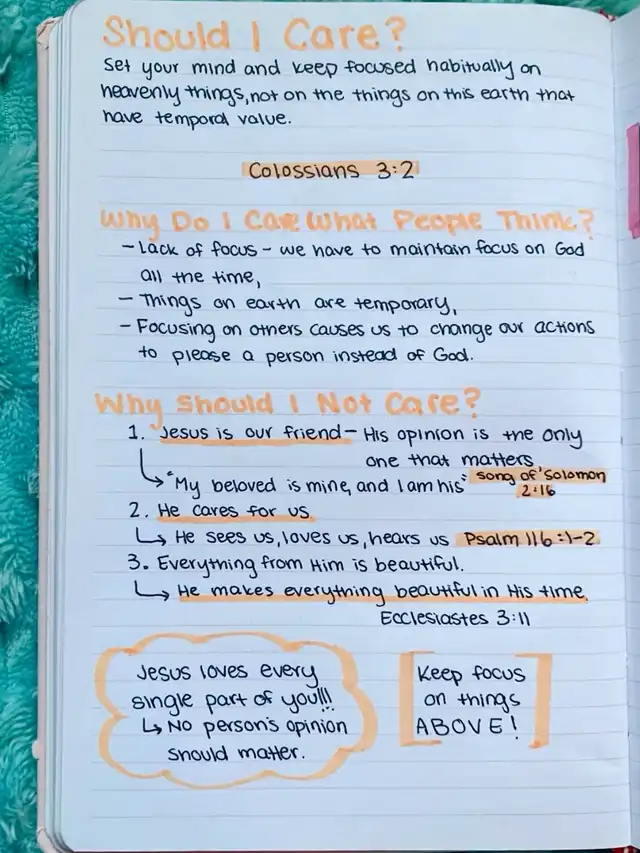 Should I Care?
Set your mind and keep focused habitually on
heavenly things, not on the things on this earth that
have temporal value.
Colossians 3:2
Why Do I Care What People Think?
- Lack of focus - we have to maintain focus on God
all the time,
- Things on earth are temporary,
- Focusing on others causes us to change our actions
to please a person instead of God.
Why Should I Not Care?
1. Jesus is our friend - His opinion is the only
one that matters
↳ "My beloved is mine, and I am his" Song of Solomon
2:16
2. He cares for us
↳ He sees us, loves us, hears us Psalm 116:1-2
3. Everything from Him is beautiful.
↳ He makes everything beautiful in His time.
Ecclesiastes 3:11
Jesus loves every
single part of you!!!
↳ No person's opinion
should matter.
Keep focus
on things
ABOVE!